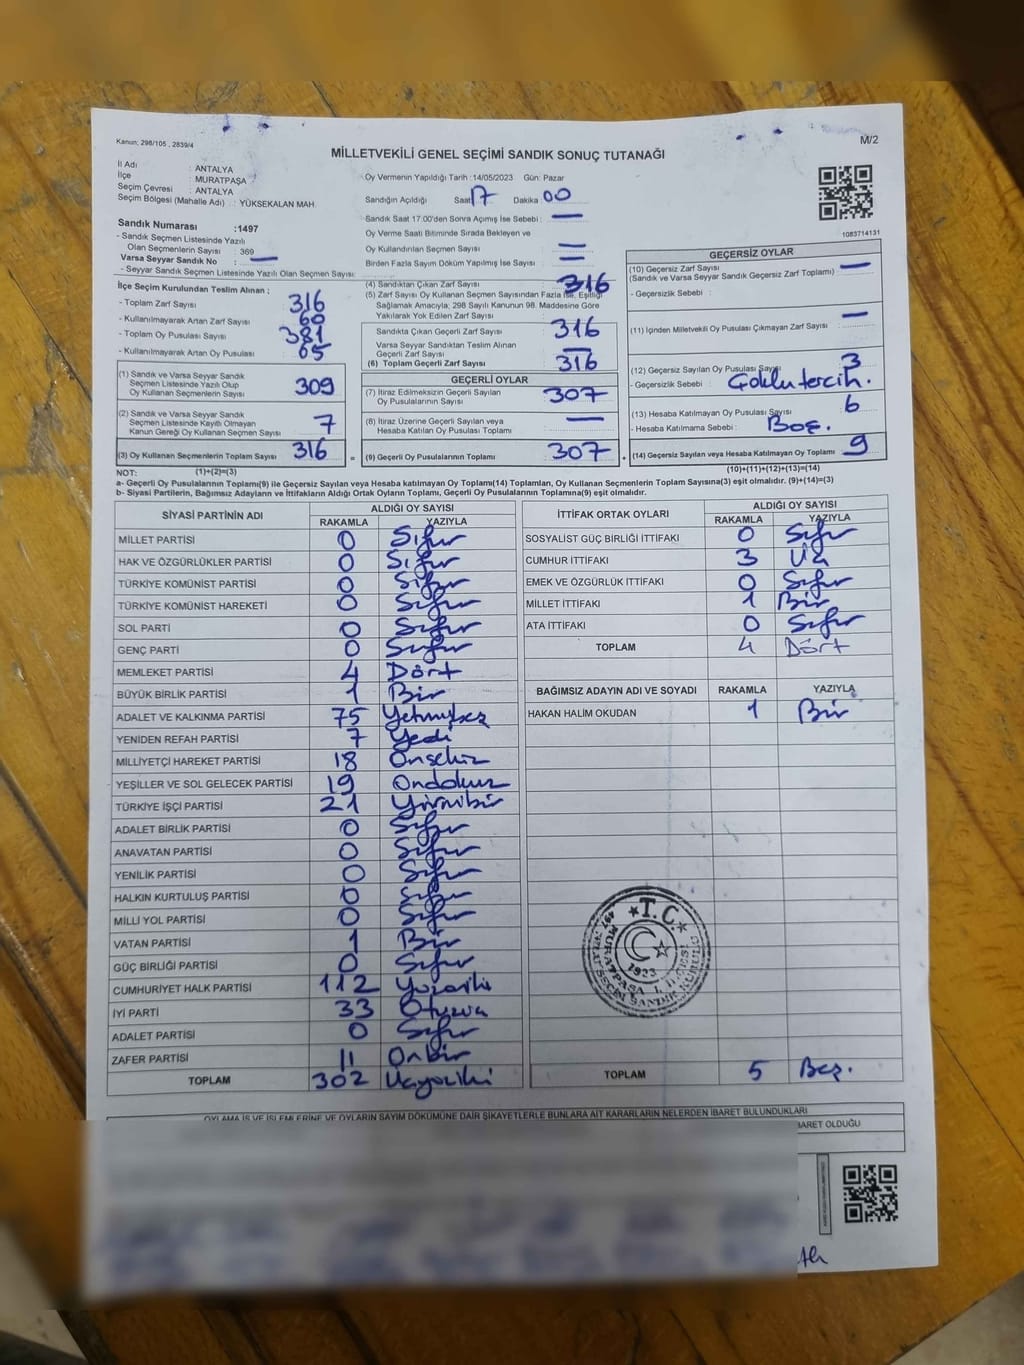 Kanun: 298/105 , 2839/4
M/2
MİLLETVEKİLİ GENEL SEÇİMİ SANDIK SONUÇ TUTANAĞI
İl Adı : ANTALYA
İlçe : MURATPAŞA
Seçim Çevresi : ANTALYA
Seçim Bölgesi (Mahalle Adı) : YÜKSEKALAN MAH.
Oy Vermenin Yapıldığı Tarih :14/05/2023 Gün: Pazar
Sandığın Açıldığı Saat 17 Dakika 00
Sandık Saat 17:00'den Sonra Açımış İse Sebebi : —
Oy Verme Saati Bitiminde Sırada Bekleyen ve
Oy Kullandırılan Seçmen Sayısı : —
Birden Fazla Sayım Döküm Yapılmış İse Sayısı : —
1083714131
Sandık Numarası :1497
- Sandık Seçmen Listesinde Yazılı
Olan Seçmenlerin Sayısı : 369
Varsa Seyyar Sandık No : —
- Seyyar Sandık Seçmen Listesinde Yazılı Olan Seçmen Sayısı:
İlçe Seçim Kurulundan Teslim Alınan ;
- Toplam Zarf Sayısı : 316
- Kullanılmayarak Artan Zarf Sayısı : 60
- Toplam Oy Pusulası Sayısı : 381
- Kullanılmayarak Artan Oy Pusulası : 65
(1) Sandık ve Varsa Seyyar Sandık
Seçmen Listesinde Yazılı Olup
Oy Kullanan Seçmenlerin Sayısı : 309
(2) Sandık ve Varsa Seyyar Sandık
Seçmen Listesinde Kayıtlı Olmayan
Kanun Gereği Oy Kullanan Seçmen Sayısı : 7
(3) Oy Kullanan Seçmenlerin Toplam Sayısı : 316
(4) Sandıktan Çıkan Zarf Sayısı : 316
(5) Zarf Sayısı Oy Kullanan Seçmen Sayısından Fazla İse, Eşitliği
Sağlamak Amacıyla; 298 Sayılı Kanunun 98. Maddesine Göre
Yakılarak Yok Edilen Zarf Sayısı :
Sandıkta Çıkan Geçerli Zarf Sayısı : 316
Varsa Seyyar Sandıktan Teslim Alınan
Geçerli Zarf Sayısı : —
(6) Toplam Geçerli Zarf Sayısı : 316
GEÇERLİ OYLAR
(7) İtiraz Edilmeksizin Geçerli Sayılan
Oy Pusulalarının Sayısı : 307
(8) İtiraz Üzerine Geçerli Sayılan veya
Hesaba Katılan Oy Pusulası Toplamı : —
= (9) Geçerli Oy Pusulalarının Toplamı : 307
GEÇERSİZ OYLAR
(10) Geçersiz Zarf Sayısı : —
(Sandık ve Varsa Seyyar Sandık Geçersiz Zarf Toplamı)
- Geçersizlik Sebebi :
(11) İçinden Milletvekili Oy Pusulası Çıkmayan Zarf Sayısı : —
(12) Geçersiz Sayılan Oy Pusulası Sayısı : 3
- Geçersizlik Sebebi : Çoklu tercih.
(13) Hesaba Katılmayan Oy Pusulası Sayısı : 6
- Hesaba Katılmama Sebebi : Boş.
+ (14) Geçersiz Sayılan veya Hesaba Katılmayan Oy Toplamı : 9
NOT: (1)+(2)=(3)
(10)+(11)+(12)+(13)=(14)
a- Geçerli Oy Pusulalarının Toplamı(9) ile Geçersiz Sayılan veya Hesaba Katılmayan Oy Toplamı(14) Toplamları, Oy Kullanan Seçmenlerin Toplam Sayısına(3) eşit olmalıdır. (9)+(14)=(3)
b- Siyasi Partilerin, Bağımsız Adayların ve İttifakların Aldığı Ortak Oyların Toplamı, Geçerli Oy Pusulalarının Toplamına(9) eşit olmalıdır.
SİYASİ PARTİNİN ADI ALDIĞI OY SAYISI
RAKAMLA YAZIYLA
MİLLET PARTİSİ 0 Sıfır
HAK VE ÖZGÜRLÜKLER PARTİSİ 0 Sıfır
TÜRKİYE KOMÜNİST PARTİSİ 0 Sıfır
TÜRKİYE KOMÜNİST HAREKETİ 0 Sıfır
SOL PARTİ 0 Sıfır
GENÇ PARTİ 0 Sıfır
MEMLEKET PARTİSİ 4 Dört
BÜYÜK BİRLİK PARTİSİ 1 Bir
ADALET VE KALKINMA PARTİSİ 75 Yetmişbeş
YENİDEN REFAH PARTİSİ 7 Yedi
MİLLİYETÇİ HAREKET PARTİSİ 18 Onsekiz
YEŞİLLER VE SOL GELECEK PARTİSİ 19 Ondokuz
TÜRKİYE İŞÇİ PARTİSİ 21 Yirmibir
ADALET BİRLİK PARTİSİ 0 Sıfır
ANAVATAN PARTİSİ 0 Sıfır
YENİLİK PARTİSİ 0 Sıfır
HALKIN KURTULUŞ PARTİSİ 0 Sıfır
MİLLİ YOL PARTİSİ 0 Sıfır
VATAN PARTİSİ 1 Bir
GÜÇ BİRLİĞİ PARTİSİ 0 Sıfır
CUMHURİYET HALK PARTİSİ 112 Yüzoniki
İYİ PARTİ 33 Otuzüç
ADALET PARTİSİ 0 Sıfır
ZAFER PARTİSİ 11 Onbir
TOPLAM 302 Üçyüziki
İTTİFAK ORTAK OYLARI ALDIĞI OY SAYISI
RAKAMLA YAZIYLA
SOSYALİST GÜÇ BİRLİĞİ İTTİFAKI 0 Sıfır
CUMHUR İTTİFAKI 3 Üç
EMEK VE ÖZGÜRLÜK İTTİFAKI 0 Sıfır
MİLLET İTTİFAKI 1 Bir
ATA İTTİFAKI 0 Sıfır
TOPLAM 4 Dört
BAĞIMSIZ ADAYIN ADI VE SOYADI RAKAMLA YAZIYLA
HAKAN HALİM OKUDAN 1 Bir
★T.C★
1923
MURATPAŞA 1. İLÇESİ
SEÇİM SANDIK KURULU
TOPLAM 5 Beş.
OYLAMA İŞ VE İŞLEMLERİNE VE OYLARIN SAYIM DÖKÜMÜNE DAİR ŞİKAYETLERLE BUNLARA AİT KARARLARIN NELERDEN İBARET BULUNDUKLARI
BARET OLDUĞU